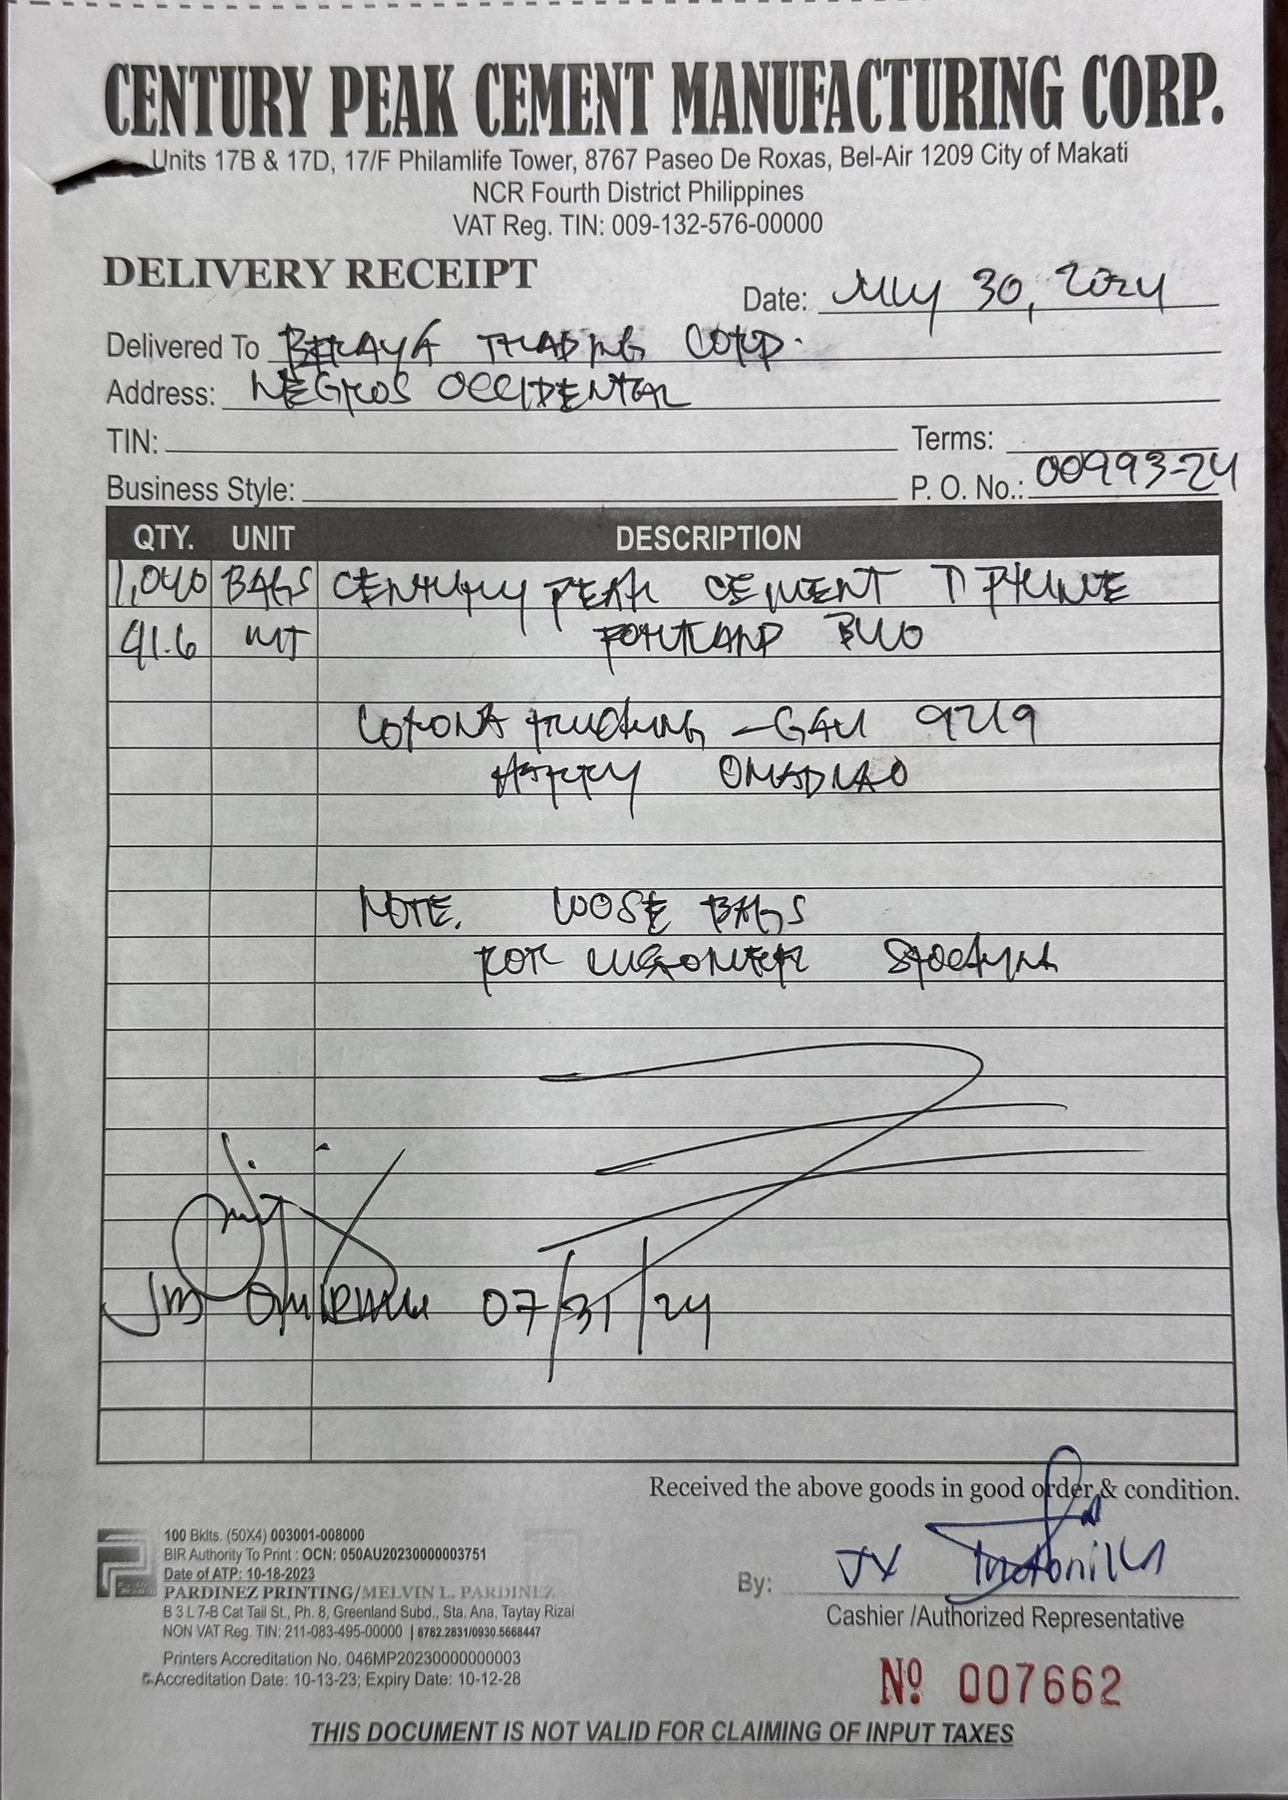 CENTURY PEAK CEMENT MANUFACTURING CORP.
Units 17B & 17D, 17/F Philamlife Tower, 8767 Paseo De Roxas, Bel-Air 1209 City of Makati
NCR Fourth District Philippines
VAT Reg. TIN: 009-132-576-00000
DELIVERY RECEIPT
Date: July 30, 2024
Delivered To TRADING CORP.
Address: NEGROS OCCIDENTAL
TIN:
Terms:
Business Style:
P. O. No.: 00993-24
QTY. UNIT DESCRIPTION
1,040 BAGS CENTURY PEAK CEMENT PRIME
41.6 MT PORTLAND
CORONA TRUCKING - GAU 9219
HARRY OMADLAO
NOTE. LOOSE BAGS
FOR CUSTOMER
07/31/24
Received the above goods in good order & condition.
100 Bklts. (50X4) 003001-008000
BIR Authority To Print : OCN: 050AU20230000003751
Date of ATP: 10-18-2023
PARDINEZ PRINTING/MELVIN L. PARDINEZ
B 3 L 7-B Cat Tail St., Ph. 8, Greenland Subd., Sta. Ana, Taytay Rizal
NON VAT Reg. TIN: 211-083-495-00000 | 8782.2831/0930.5668447
Printers Accreditation No. 046MP20230000000003
Accreditation Date: 10-13-23; Expiry Date: 10-12-28
By:
Cashier /Authorized Representative
Nº 007662
THIS DOCUMENT IS NOT VALID FOR CLAIMING OF INPUT TAXES